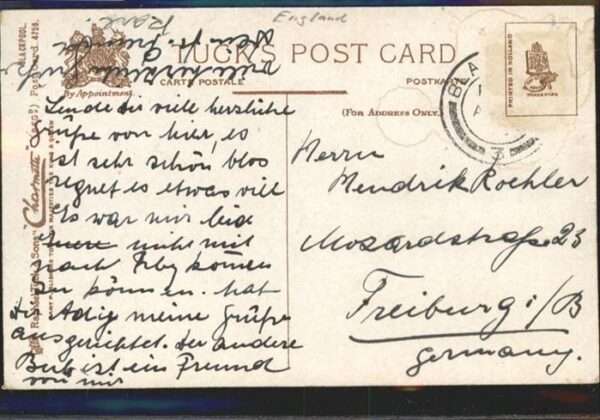 England
Karl
TUCK'S POST CARD
CARTE POSTALE
POSTKARTE
By Appointment.
(For Address Only.)
PRINTED IN HOLLAND
BLACKPOOL.
Postcard 4756.
Raphael Tuck & Sons "Charmette"
BLA
3
Sende dir viele herzliche
Grüße von hier, es
ist sehr schön blos
regnet es etwas viel
Es war mir leid
nicht mit
nach Frby kommen
zu können. hat
Dir Adig meine Grüße
ausgerichtet. Der andere
Bub ist ein Freund
von mir
Herrn
Hendrik Roehler
Mozardstraße 23
Freiburg i/B
Germany.